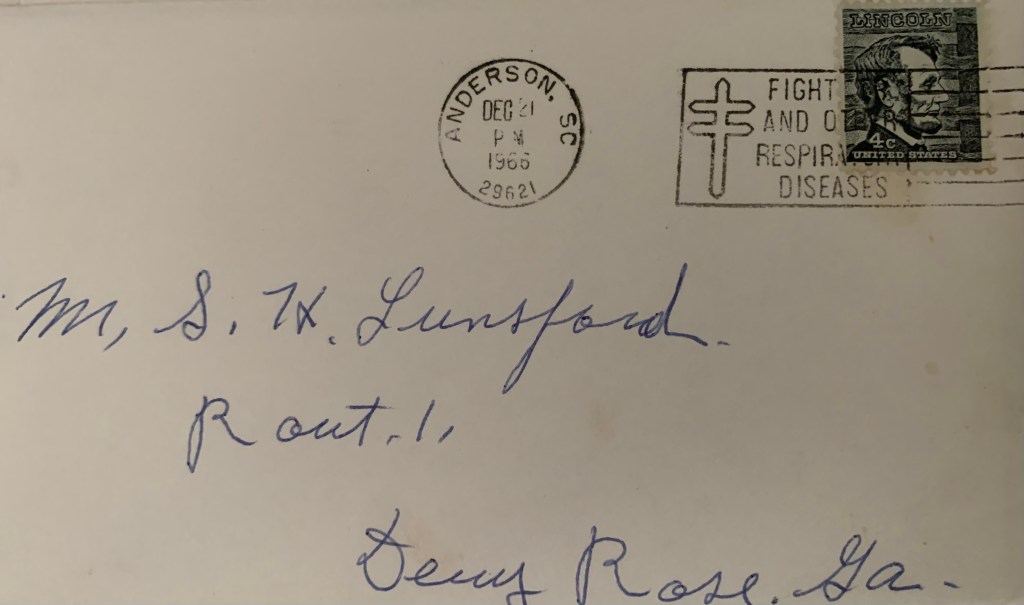 ANDERSON, SC
DEC 21
PM
1966
29621
FIGHT
AND OTHER
RESPIRATORY
DISEASES
LINCOLN
4c
UNITED STATES
Mr, S. H. Lunsford.
Rout. 1,
Dewy Rose. Ga.